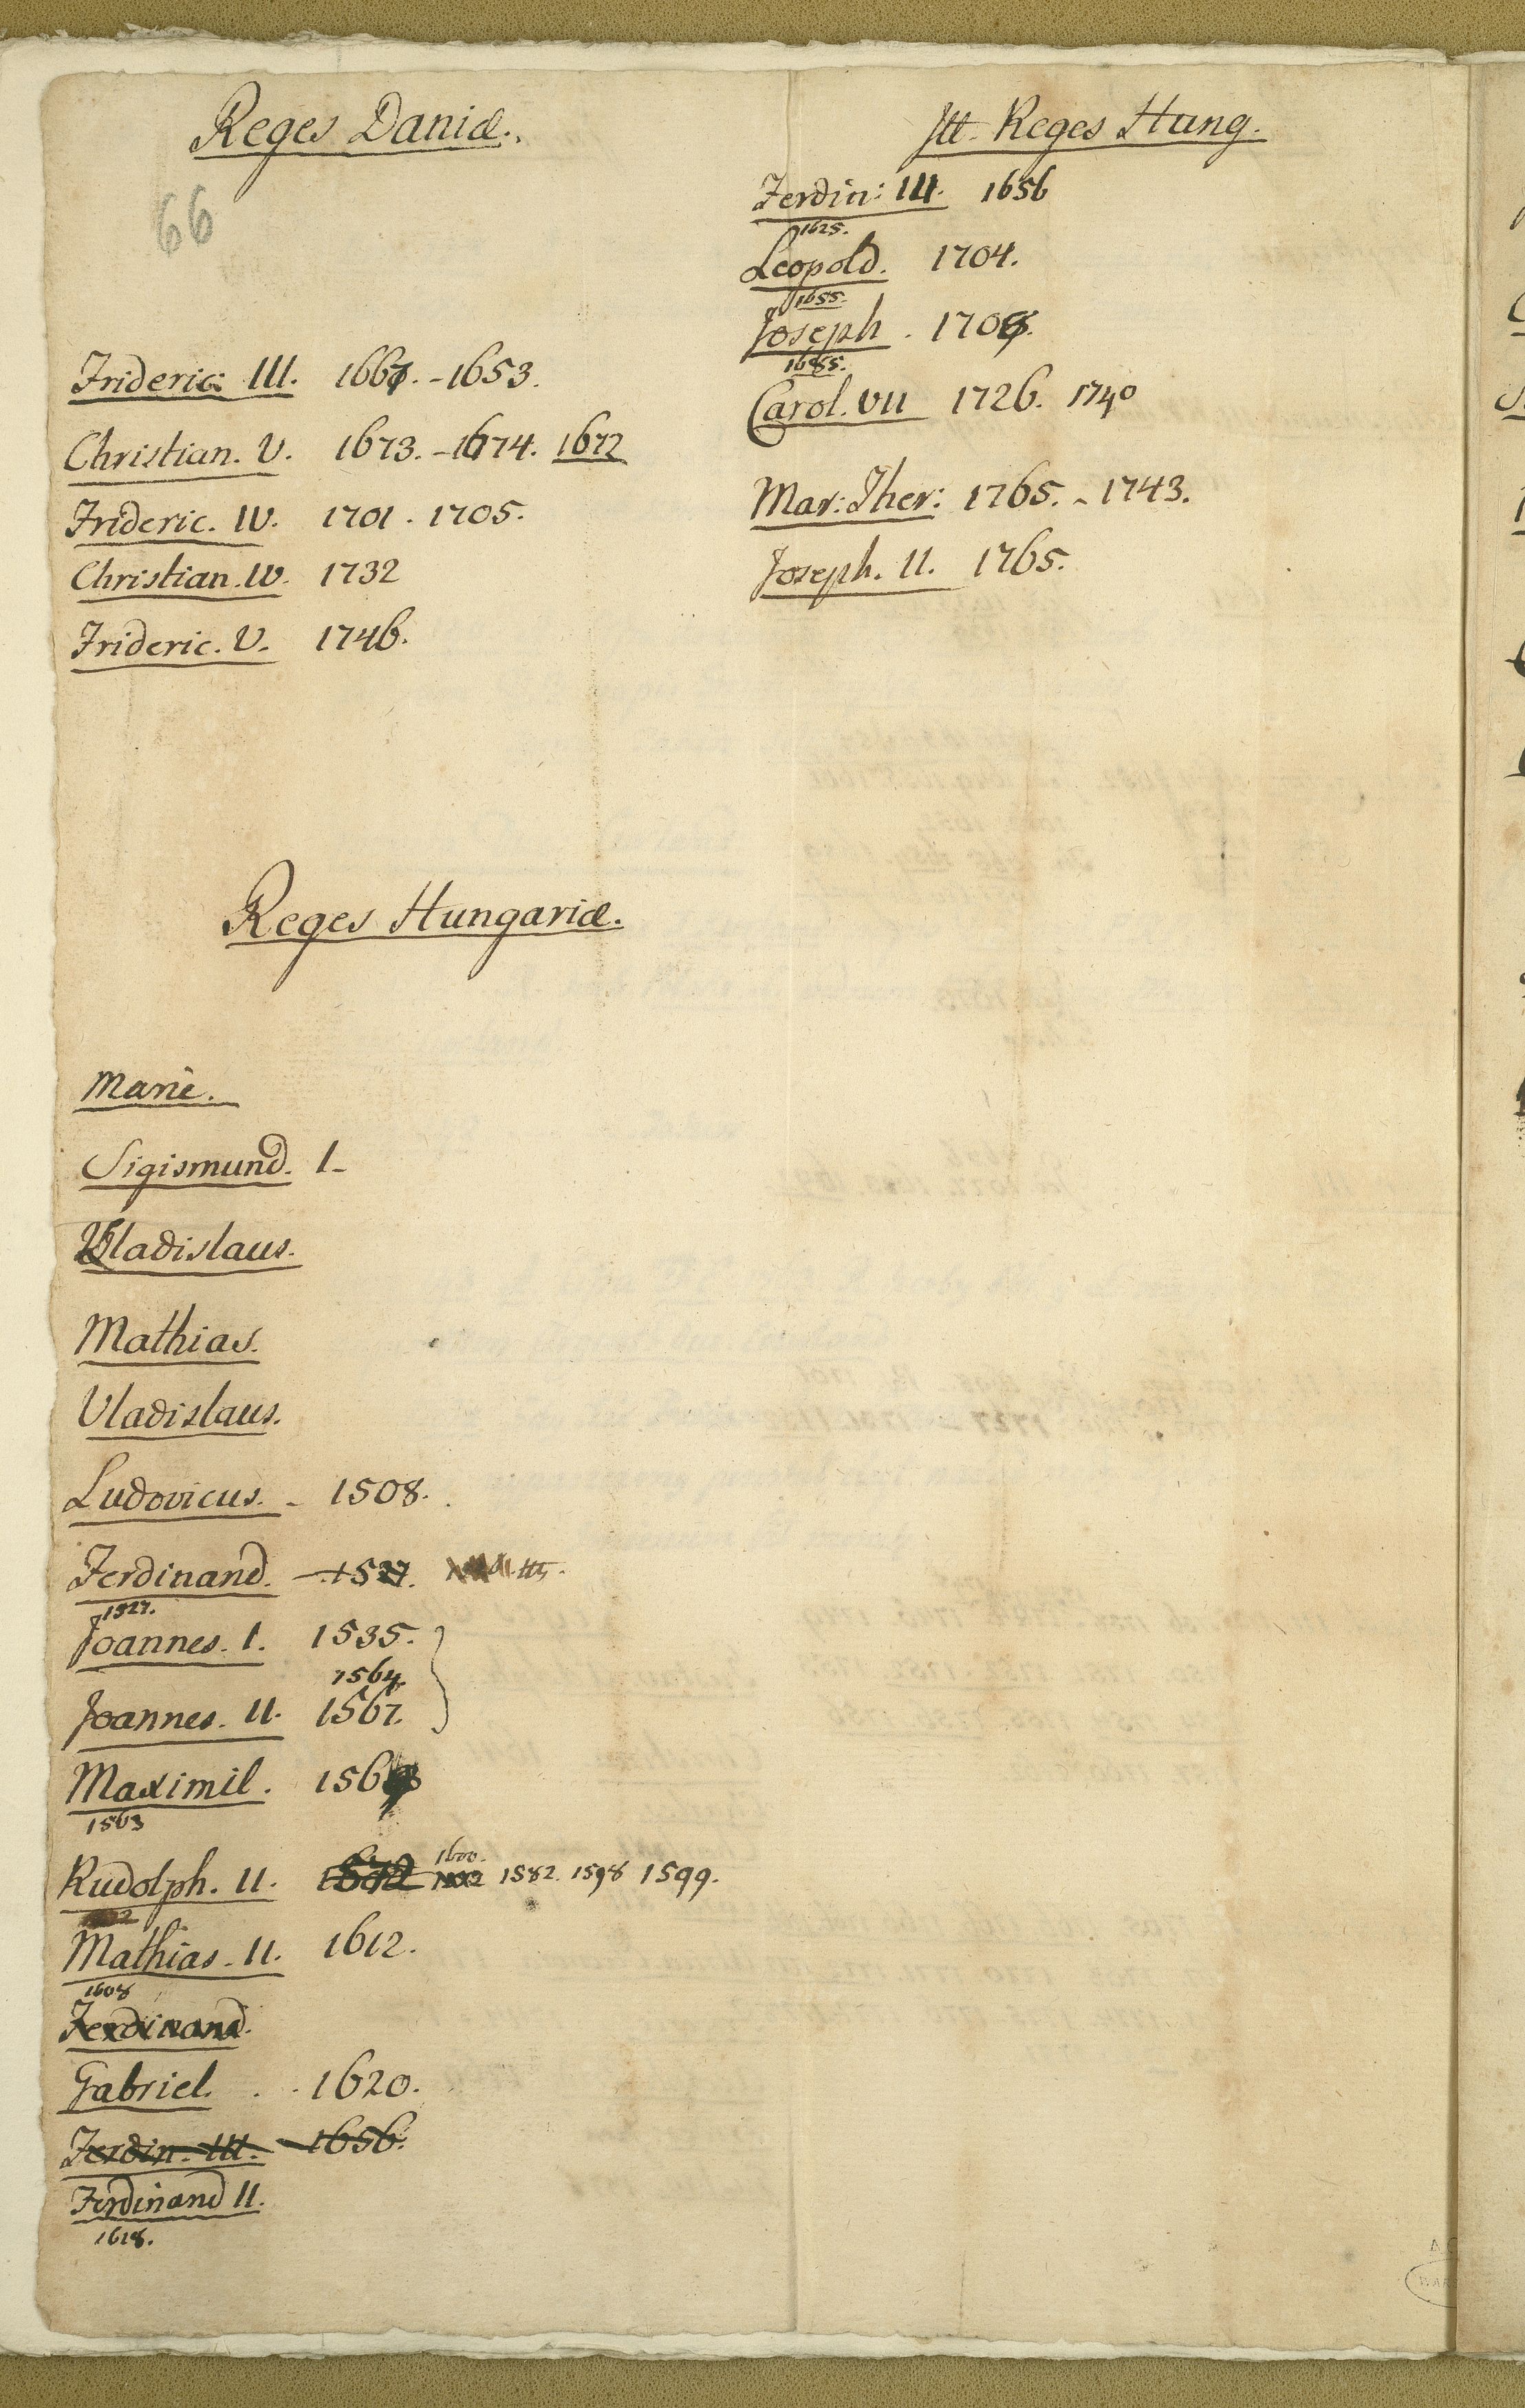 Reges Daniæ.
66
Frideric: III. 1667. - 1653.
Christian. V. 1673. - 1674. 1672
Frideric. IV. 1701. 1705.
Christian. IV. 1732
Frideric. V. 1746.
Reges Hungariæ.
Marie.
Sigismund. I-
Vladislaus.
Mathias.
Vladislaus.
Ludovicus. - 1508.
Ferdinand. - 1527.
1527.
Joannes. I. 1535.
1564.
Joannes. II. 1567.
Maximil. 156
1563
Rudolph. II. 1600. 1582. 1598 1599.
Mathias. II. 1612.
1608
Ferdinand.
Gabriel. . . 1620.
Ferdin. III. - 1656.
Ferdinand II.
1618.
Reges Hung.
Ferdin: III. 1656
1625.
Leopold. 1704.
1655.
Joseph. 170
Carol. VII 1726. 1740
Mar: Ther: 1765. - 1743.
Joseph. II. 1765.